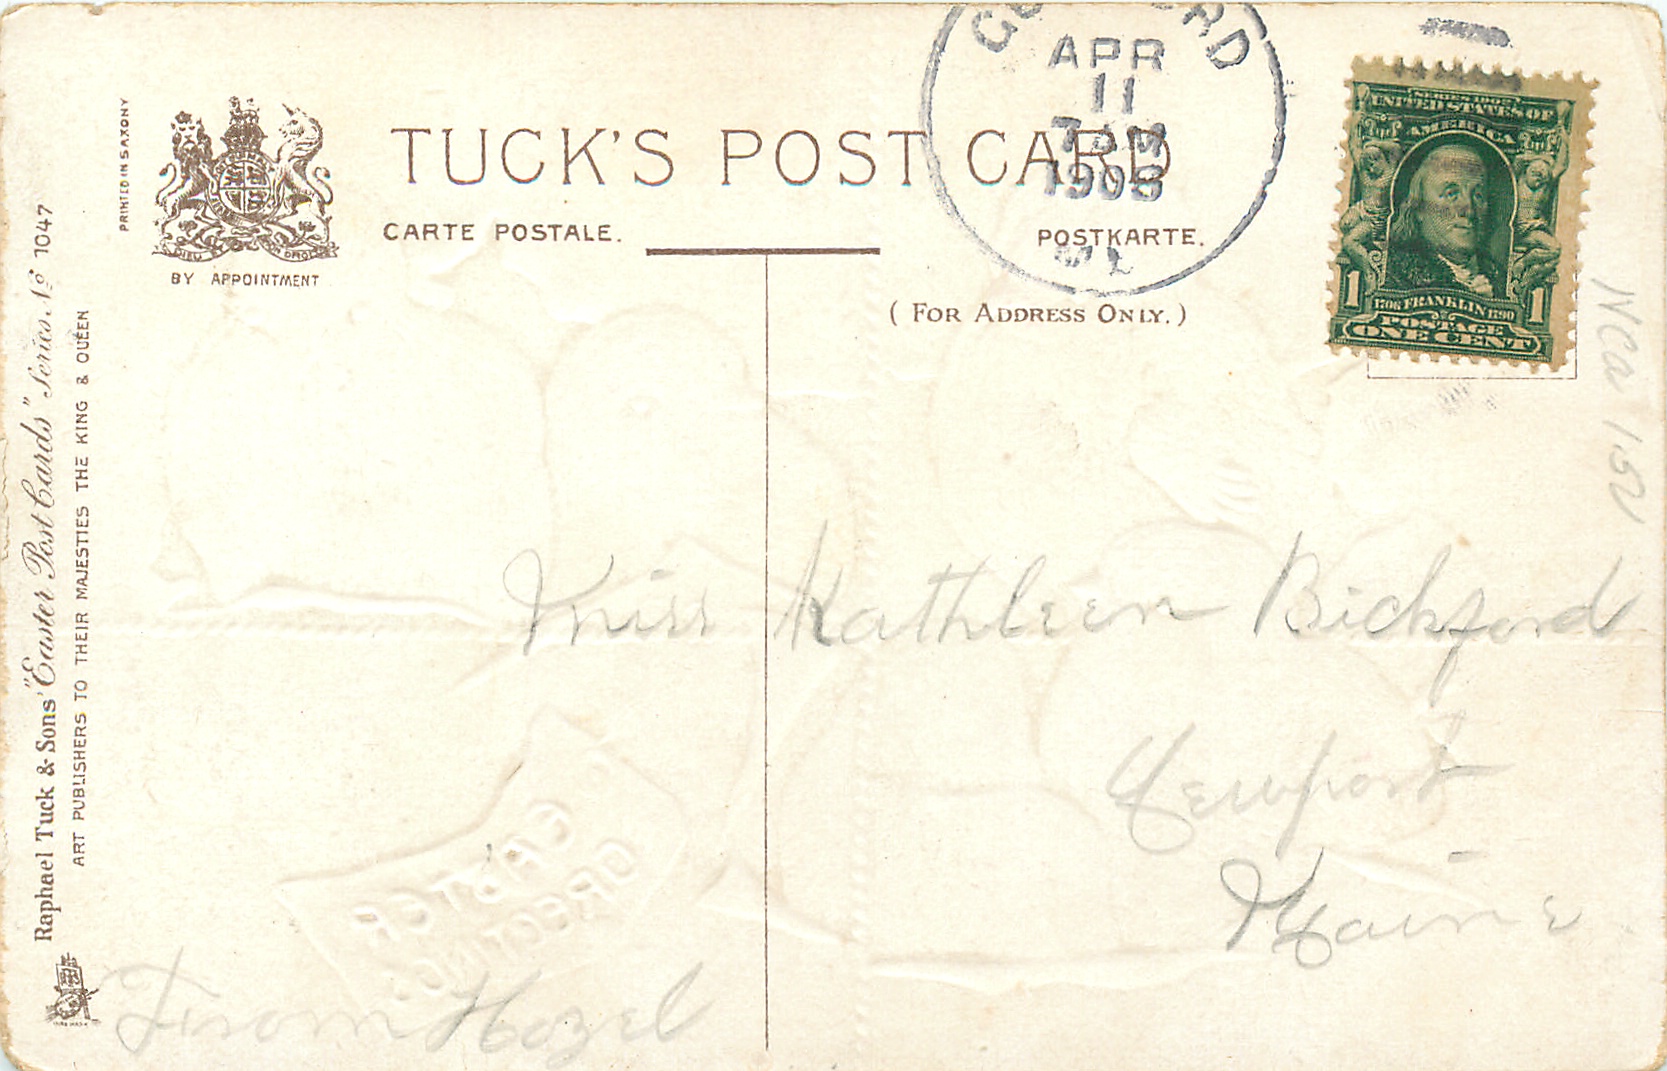 PRINTED IN SAXONY
TUCK'S POST CARD
CARTE POSTALE.
POSTKARTE.
BY APPOINTMENT
(FOR ADDRESS ONLY.)
APR
11
1908
SERIES 1902
UNITED STATES OF
AMERICA
1706 FRANKLIN 1790
POSTAGE
1 ONE CENT 1
Raphael Tuck & Sons' "Easter Post Cards" Series No 1047
ART PUBLISHERS TO THEIR MAJESTIES THE KING & QUEEN
Miss Kathleen Bickford
Newport
Maine
From Hazel
EASTER
GREETING
1.50